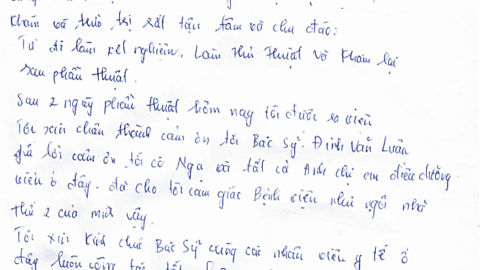 Khám và điều trị rất tận tâm và chu đáo:
Từ đi làm xét nghiệm, Làm thủ thuật và Khám lại
sau phẫu thuật.
Sau 2 ngày phẫu thuật hôm nay tôi được ra viện
Tôi xin chân thành cảm ơn tới Bác Sỹ: Đinh Văn Luân
gửi lời cảm ơn tới cô Nga và tất cả Anh chị em điều dưỡng
viên ở đây. đã cho tôi cảm giác Bệnh viện như ngôi nhà
thứ 2 của mình vậy.
Tôi xin Kính chúc Bác Sỹ cùng các nhân viên y tế ở
đây luôn công tác tốt